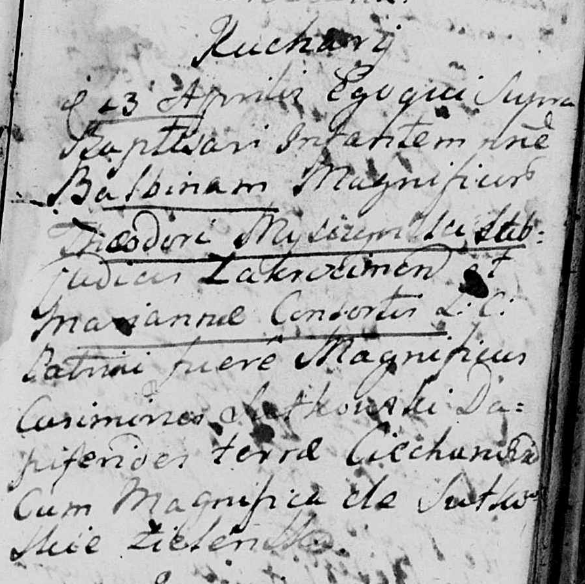 Kucharij
d 23 Aprilis Ego qui Supra
Baptisavi Infantem nne
Balbinam Magnificor
Theodori Myszczynski Sub=
judicis Zakroczimen et
Mariannæ Consortis L: C:
Patrini fuere Magnificus
Casimirus Sutkowski Da=
piferides terræ Ciechano
Cum Magnifica de Sutko
skie Zielenska